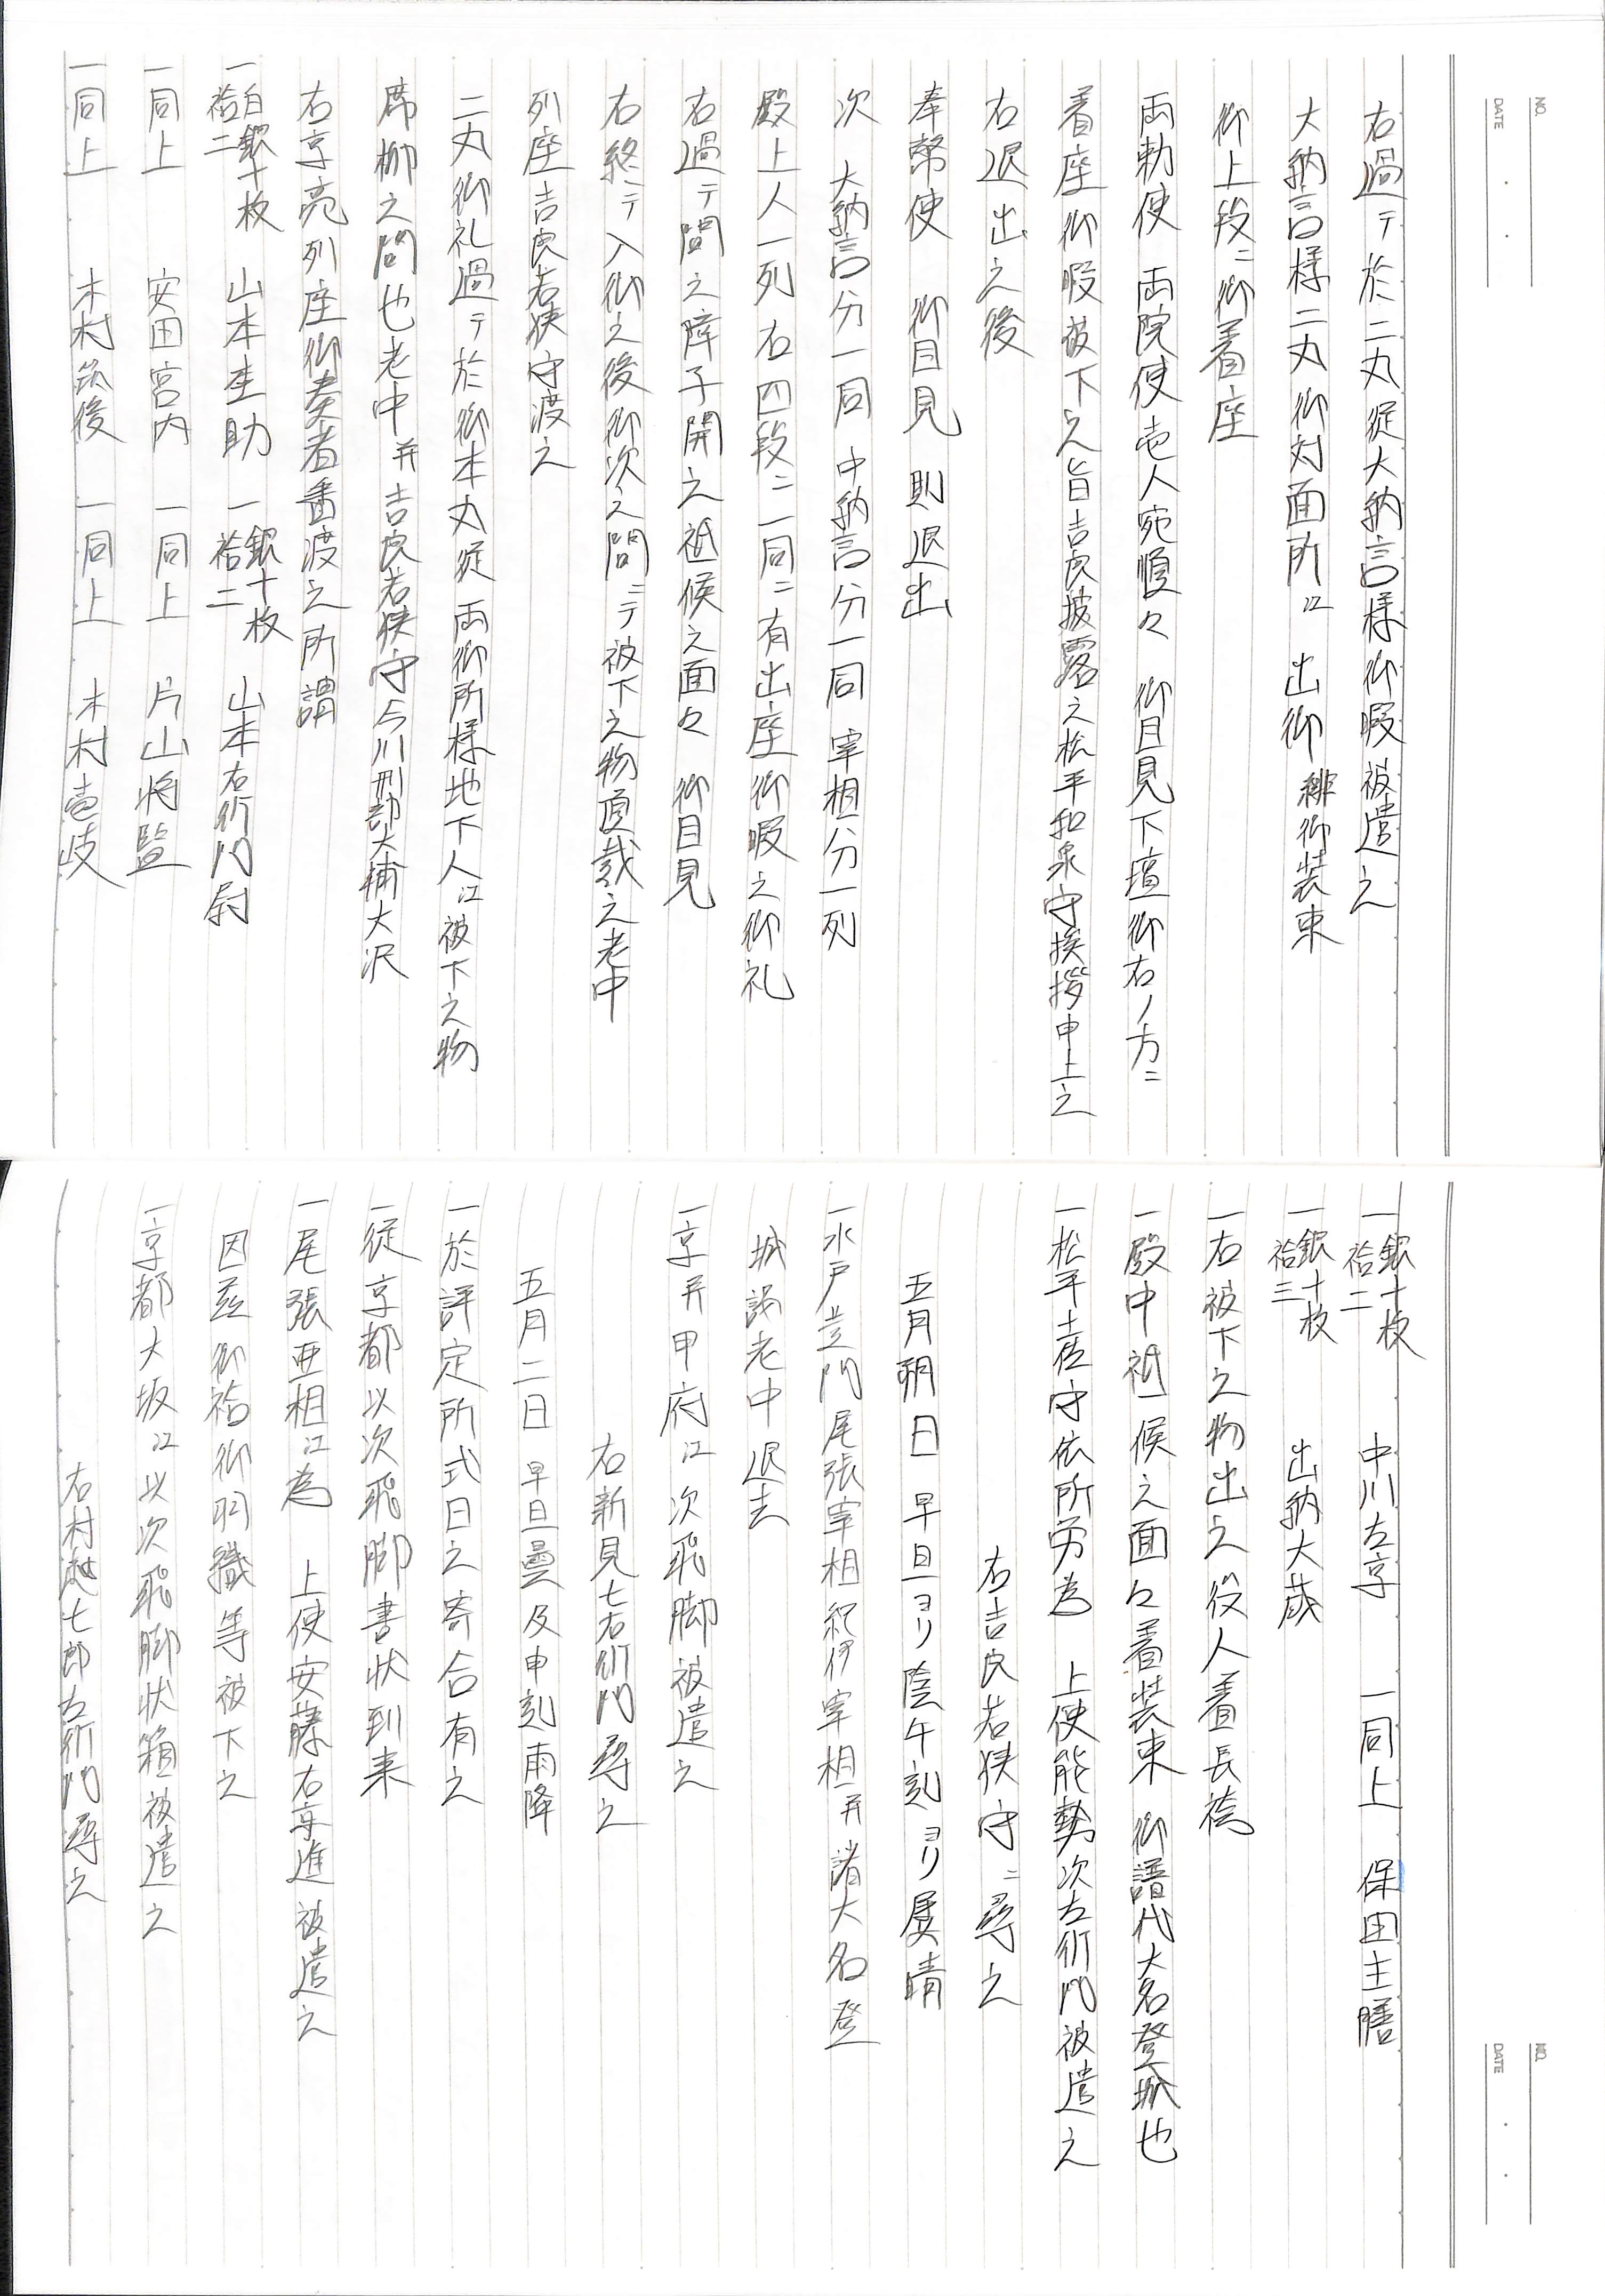 NO.
DATE
右過テ於二丸従大納言様御暇被遣之
大納言様二丸御対面所江 出御 緋御装束
御上段ニ御着座
両勅使 両院使壱人宛順々 御目見下壇御右ノ方ニ
着座御暇被下之旨吉良披露之松平和泉守挨拶申上之
右退出之後
奉幣使 御目見 則退出
次 大納言分一同 中納言分一同 宰相分一列
殿上人一列 右四段ニ一同ニ有出座御暇之御礼
右過テ間之障子開之祗候之面々 御目見
右終テ入御之後御次之間ニテ被下之物頂戴之老中
列座吉良若狭守渡之
二丸御礼過テ於御本丸従 両御所様地下人江被下之物
席柳之間也老中并吉良若狭守今川刑部大輔大沢
右京亮列座御奏者番渡之所謂
一白銀十枚 袷二 山本杢助 一銀十枚 袷二 山本右衛門尉
一同上 安田宮内 一同上 片山将監
一同上 木村筑後 一同上 木村壱岐
NO.
DATE
一銀十枚 袷二 中川左京 一同上 保田主膳
一銀十枚 袷三 出納大蔵
一右被下之物出之役人着長袴
一殿中祗候之面々着装束 御譜代大名登城也
一松平土佐守依所労為 上使能勢次左衛門被遣之
右吉良若狭守ニ尋之
五月朔日 早旦ヨリ陰午刻ヨリ属晴
一水戸黄門尾張宰相紀伊宰相并諸大名登
城謁老中退去
一京并甲府江次飛脚被遣之
右新見七右衛門尋之
五月二日 早旦曇及申刻雨降
一於評定所式日之寄合有之
一従京都以次飛脚書状到来
一尾張亜相江為 上使安藤右京進被遣之
因茲御袷御羽織等被下之
一京都大坂江以次飛脚状箱被遣之
右村越七郎左衛門尋之